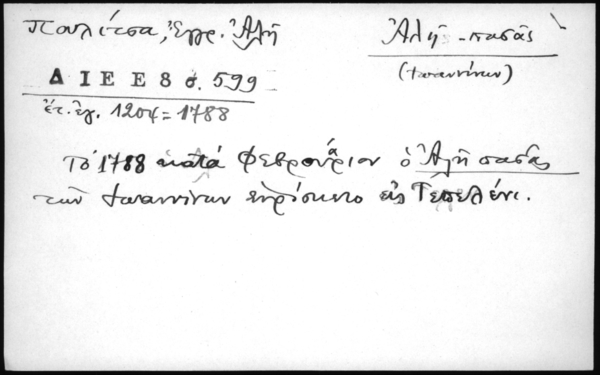 Πουλίτσα, Ἔγγρ. Ἀλῆ
Ἀλῆ-πασᾶς
(Ἰωαννίνων)
Δ Ι Ε Ε 8 σ. 599
ἔτ. ἐγ. 1204 = 1788
Τὸ 1788 κατὰ Φεβρουάριον ὁ Ἀλῆ πασᾶς
τῶν Ἰωαννίνων εὑρίσκετο εἰς Τεπελένι.